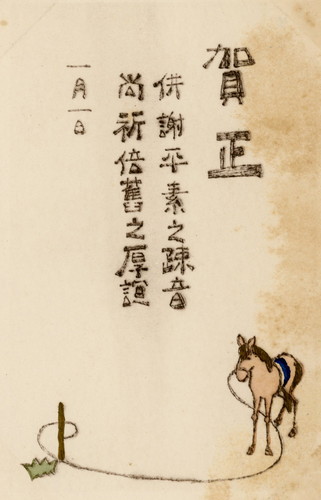 賀正
併謝平素之疎音
尚祈倍舊之厚誼
一月一日